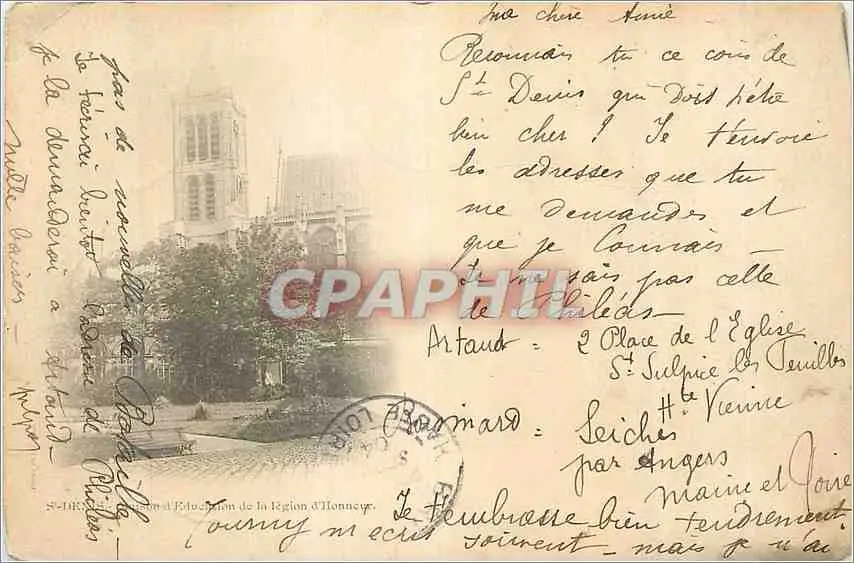 ma chère Amie
Reconnais tu ce coin de
St Denis qui Doit t'être
bien cher ! Je t'envoie
les adresses que tu
me demandes et
que je Connais —
Je ne sais pas celle
de Philéas —
Artaud = 2 Place de l'Eglise
St Sulpice les Feuilles
Hte Vienne
= Seiches
par Angers
Maine et Loire
Je t'embrasse bien tendrement
Tourny m'ecrit souvent — mais je n'ai
pas de nouvelles de Bataille —
Je t'écrirai bientôt l'adresse de Philéas
je la demanderai à Artaud —
Mille baisers —
St-DENIS - Maison d'Education de la légion d'Honneur.
CPAPHIL
LOIR